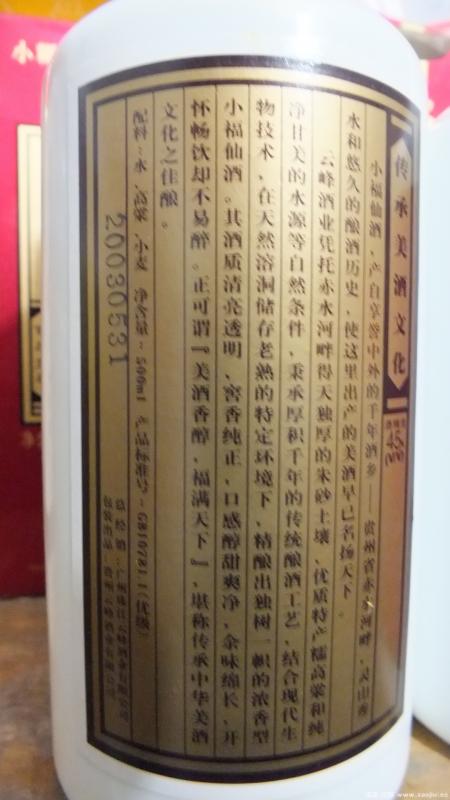 传承美酒文化
45%
(V/V)
小福仙酒，产自享誉中外的千年酒乡——贵州省赤水河畔，灵山秀
水和悠久的酿酒历史，使这里出产的美酒早已名扬天下。
云峰酒业凭托赤水河畔得天独厚的朱砂土壤、优质特产糯高粱和纯
净甘美的水源等自然条件，秉承厚积千年的传统酿酒工艺，结合现代生
物技术，在天然溶洞储存老熟的特定环境下，精酿出独树一帜的浓香型
小福仙酒。其酒质清亮透明，窖香纯正，口感醇甜爽净，余味绵长，开
怀畅饮却不易醉。正可谓『美酒香醇，福满天下』，堪称传承中华美酒
文化之佳酿。
配料：水、高粱、小麦 净含量：500ml 产品标准号：GB10781.1(优级)
总经销：广州珠江云峰酒业有限公司
包装出品：贵州云峰酒业有限公司
20030531
小福